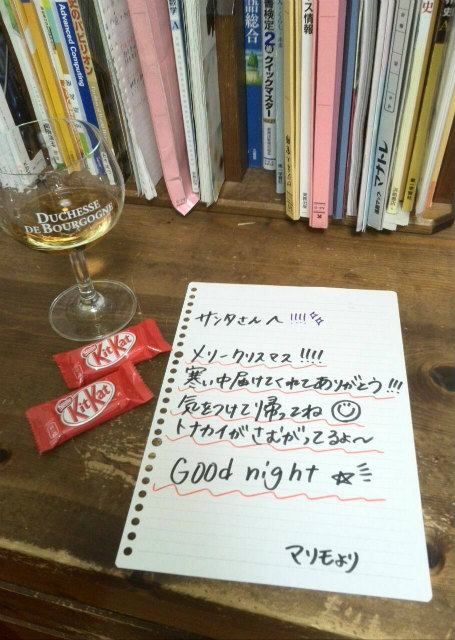 Advanced Computing
情報
総合
2級 クイックマスター
マナトレ
DUCHESSE
DE BOURGOGNE
KitKat
KitKat
サンタさんへ !!!!
メリークリスマス !!!!
寒い中届けてくれてありがとう!!!
気をつけて帰ってね
トナカイがさむがってるよ〜
Good night ☆
マリモより